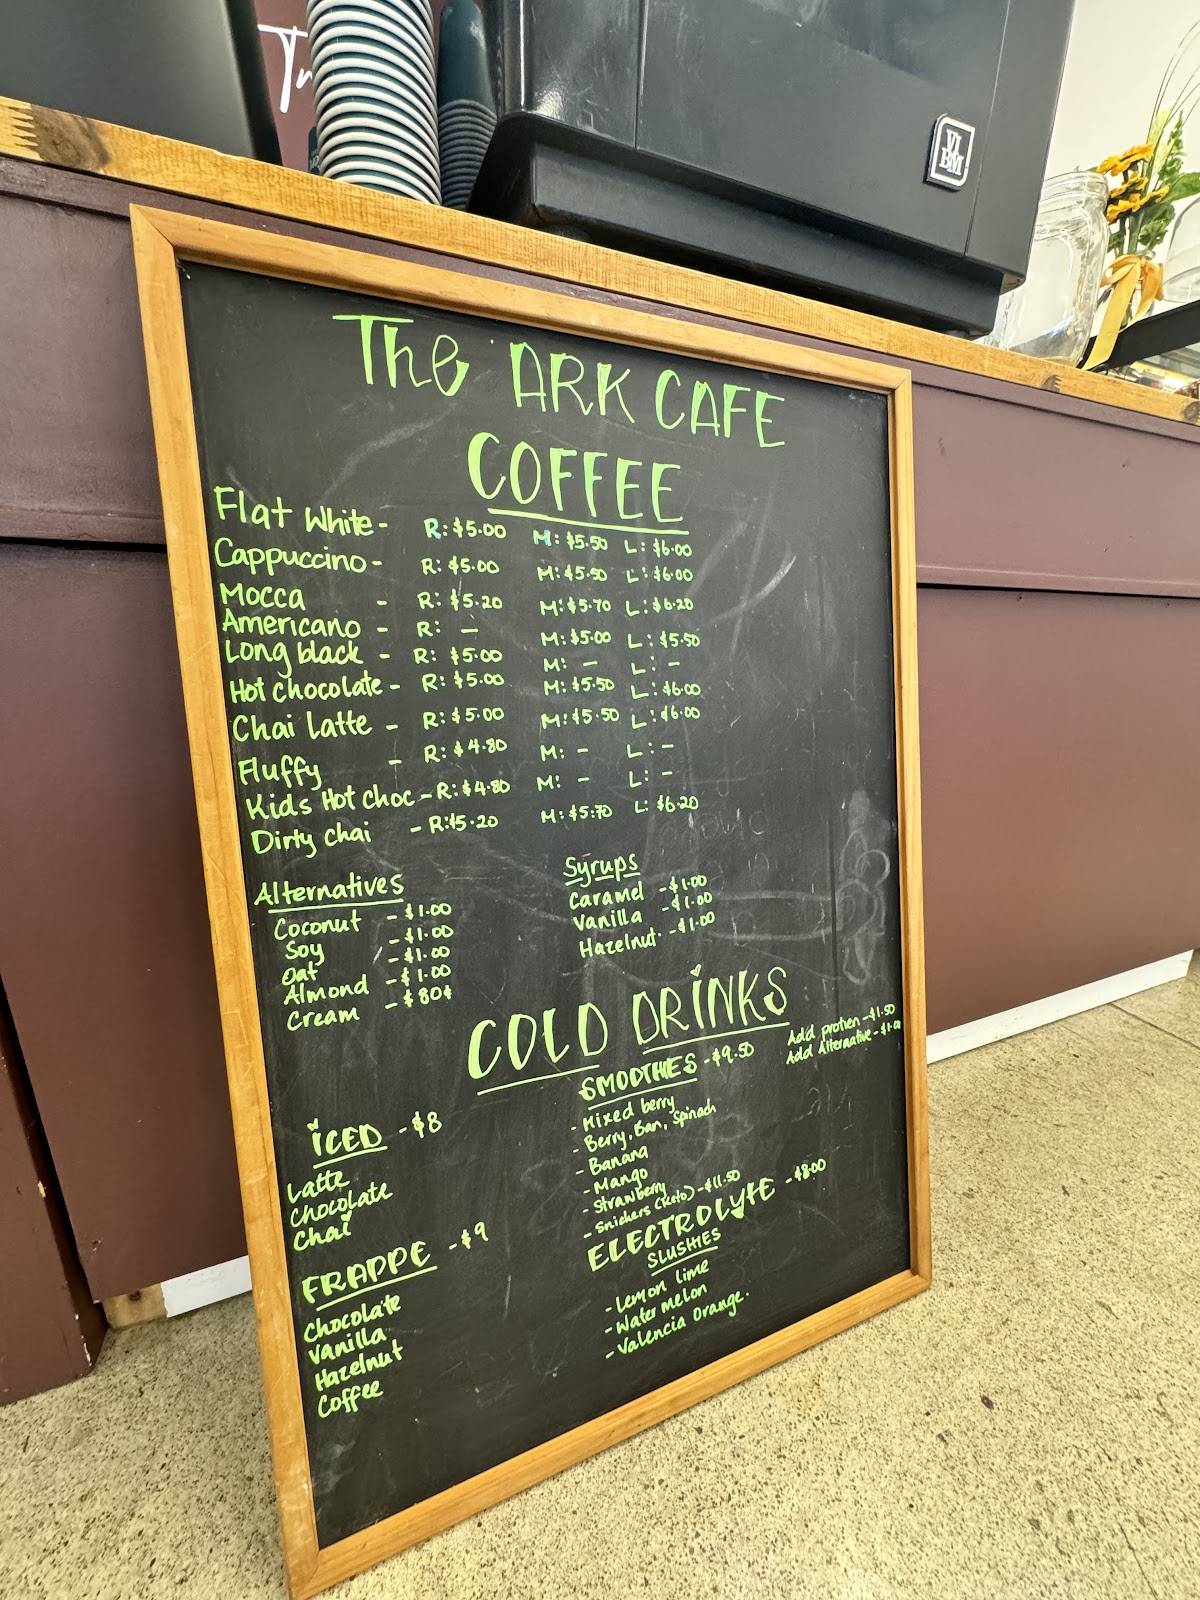 Tr
VI
BM
The ARK CAFE
COFFEE
Flat White - R: $5.00 M: $5.50 L: $6.00
Cappuccino - R: $5.00 M: $5.50 L: $6.00
Mocca - R: $5.20 M: $5.70 L: $6.20
Americano - R: — M: $5.00 L: $5.50
Long black - R: $5.00 M: - L: -
Hot chocolate - R: $5.00 M: $5.50 L: $6.00
Chai Latte - R: $5.00 M: $5.50 L: $6.00
Fluffy - R: $4.80 M: - L: -
Kids Hot choc - R: $4.80 M: - L: -
Dirty chai - R: $5.20 M: $5.70 L: $6.20
Alternatives
Coconut - $1.00
Soy - $1.00
Oat - $1.00
Almond - $1.00
Cream - $80¢
Syrups
Caramel - $1.00
Vanilla - $1.00
Hazelnut. - $1.00
COLD DRINKS
ICED - $8
Latte
Chocolate
Chai
FRAPPE - $9
Chocolate
Vanilla
Hazelnut
Coffee
SMOOTHIES - $9.50
Add protien - $1.50
Add Alternative - $1.00
- Mixed berry
- Berry, Ban, Spinach
- Banana
- Mango
- Strawberry
- Snickers (Keto) - $11.50
ELECTROLYTE - $8.00
SLUSHIES
- Lemon lime
- Water melon
- Valencia Orange.